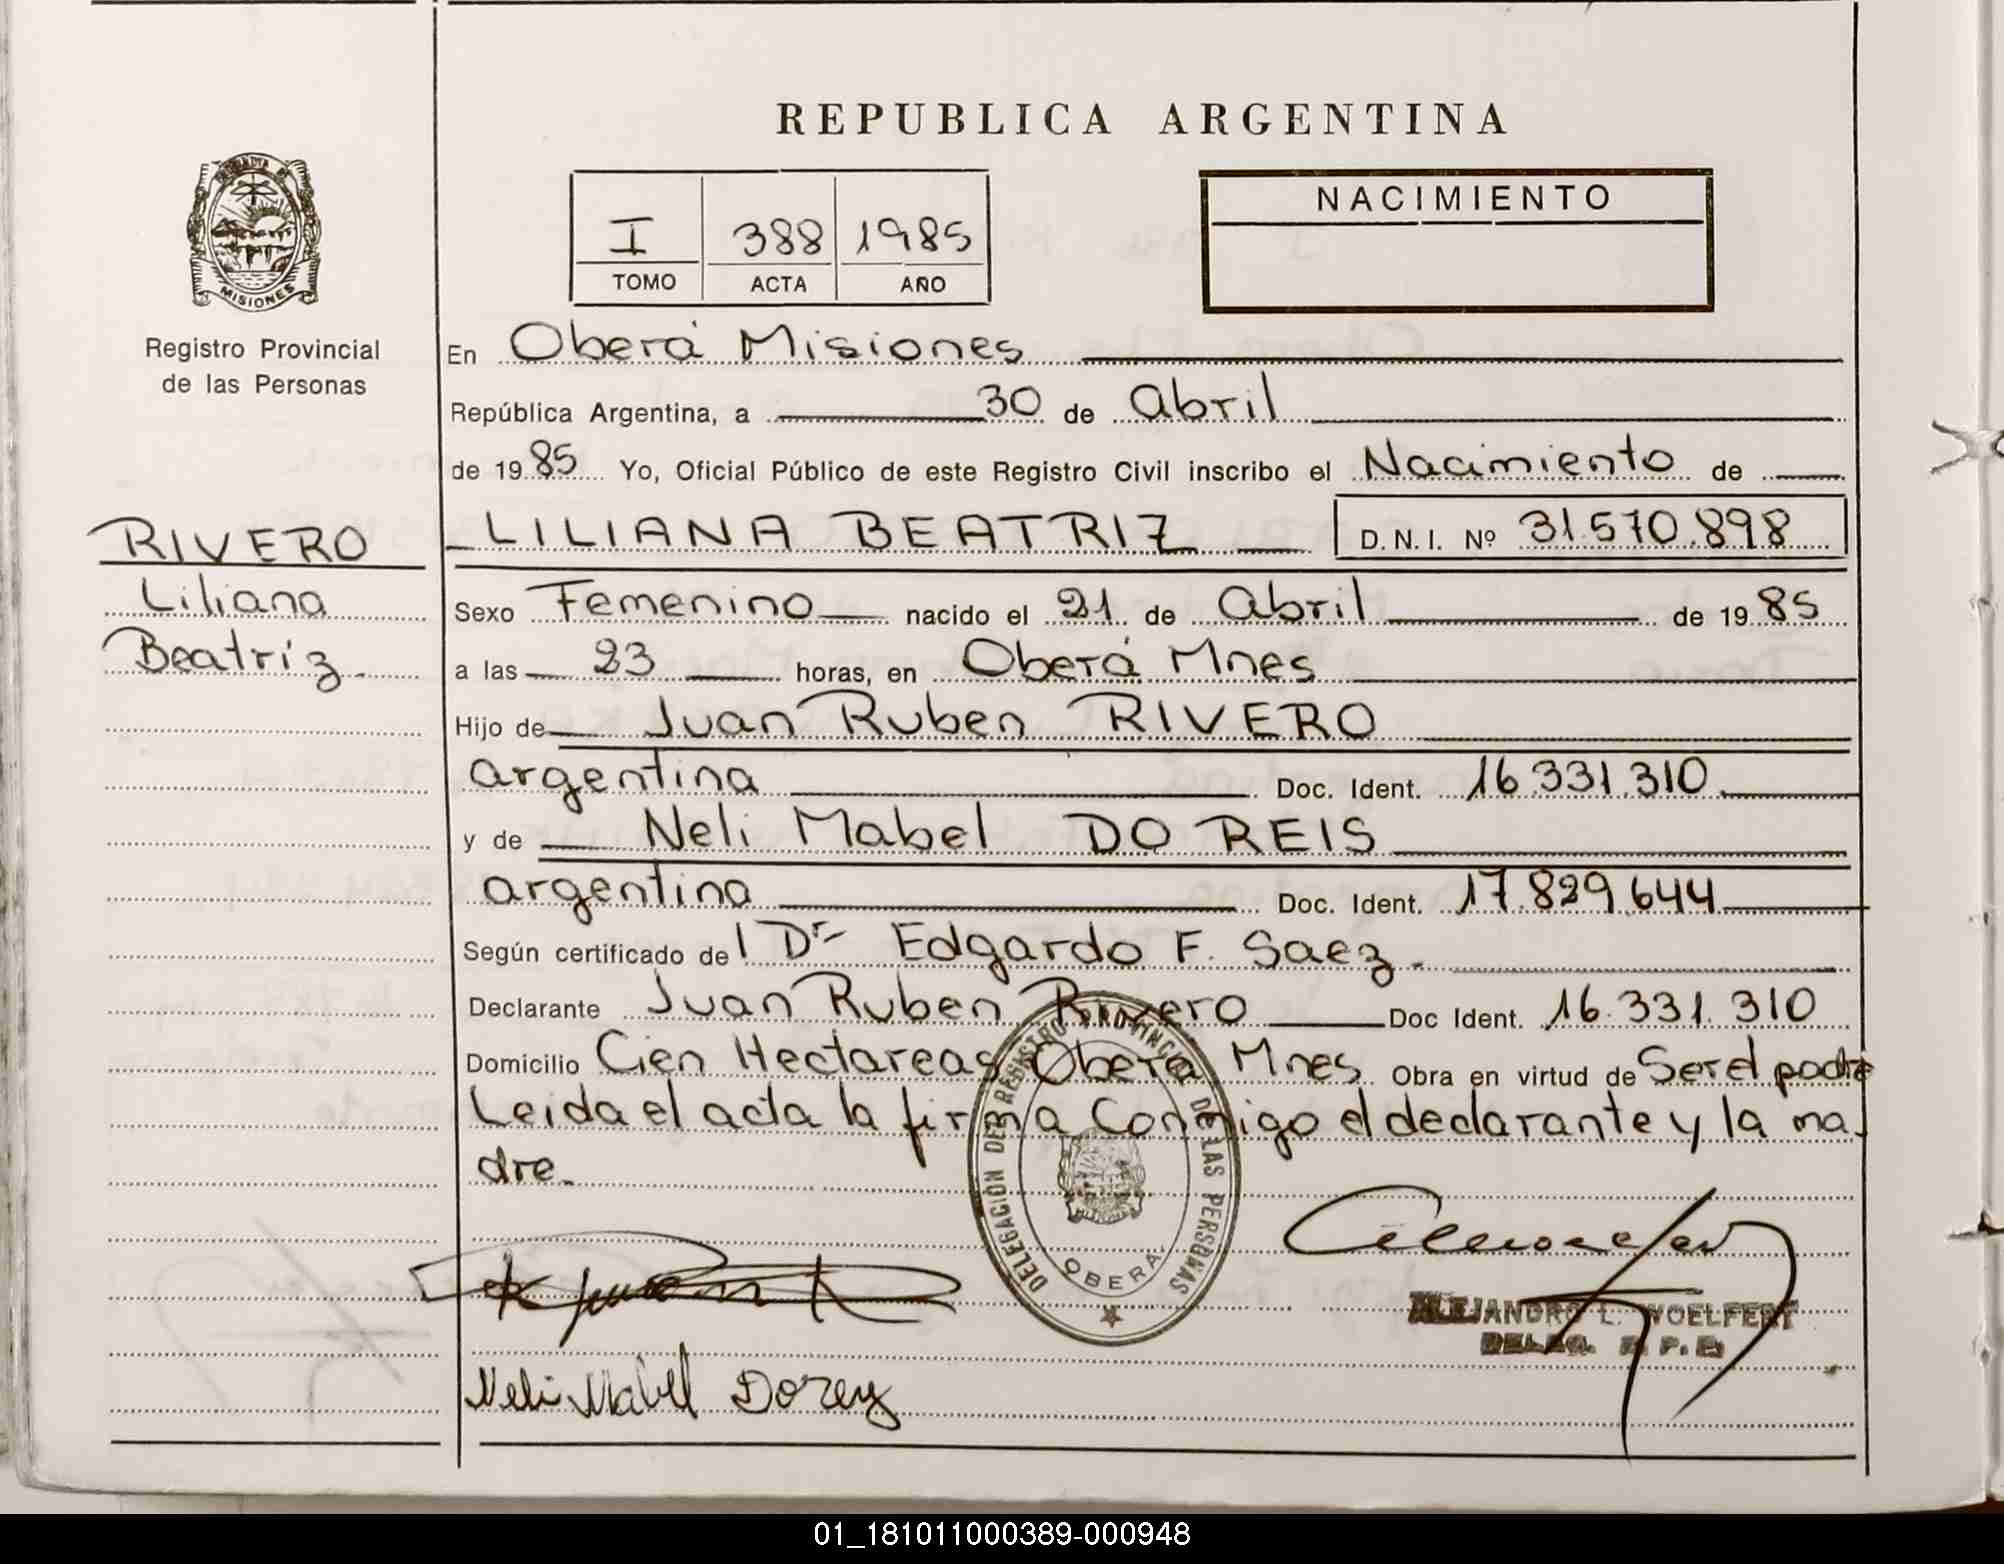 REPUBLICA ARGENTINA
MISIONES
Registro Provincial
de las Personas
I 388 1985
TOMO ACTA AÑO
NACIMIENTO
En Oberá Misiones
República Argentina, a 30 de abril
de 1985 Yo, Oficial Público de este Registro Civil inscribo el Nacimiento de
RIVERO
Liliana
Beatríz.
LILIANA BEATRIZ D.N.I. Nº 31.570.898
Sexo Femenino nacido el 21 de abril de 1985
a las 23 horas, en Oberá Mnes
Hijo de Juan Ruben RIVERO
argentina Doc. Ident. 16.331.310
y de Neli Mabel DO REIS
argentina Doc. Ident. 17.829.644
Según certificado del Dr Edgardo F. Saez.
Declarante Juan Ruben Rivero Doc Ident. 16.331.310
Domicilio Cien Hectareas Oberá Mnes Obra en virtud de Ser el padre
Leida el acta la firma Conmigo el declarante y la ma-
dre.
DELEGACIÓN DEL REGISTRO PROVINCIAL DE LAS PERSONAS
MISIONES
OBERÁ
ALEJANDRO L. WOELFERT
DELEG. R. P. P.
Neli Mabel Dorey
01_181011000389-000948